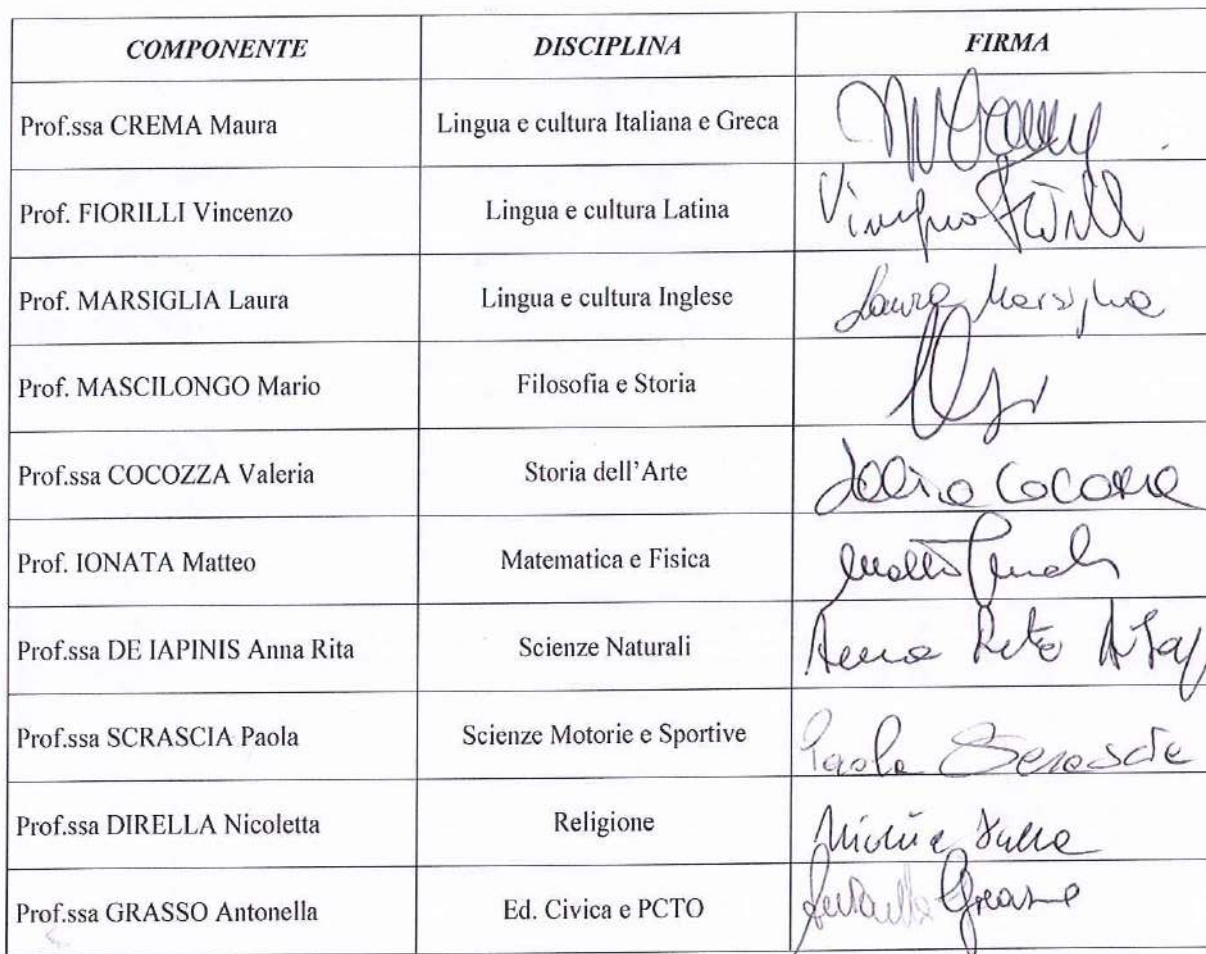 COMPONENTE DISCIPLINA FIRMA
Prof.ssa CREMA Maura Lingua e cultura Italiana e Greca
Prof. FIORILLI Vincenzo Lingua e cultura Latina
Prof. MARSIGLIA Laura Lingua e cultura Inglese Laura Marsiglia
Prof. MASCILONGO Mario Filosofia e Storia
Prof.ssa COCOZZA Valeria Storia dell'Arte Cocozza
Prof. IONATA Matteo Matematica e Fisica
Prof.ssa DE IAPINIS Anna Rita Scienze Naturali Anna Rita
Prof.ssa SCRASCIA Paola Scienze Motorie e Sportive Paola Scrascia
Prof.ssa DIRELLA Nicoletta Religione
Prof.ssa GRASSO Antonella Ed. Civica e PCTO